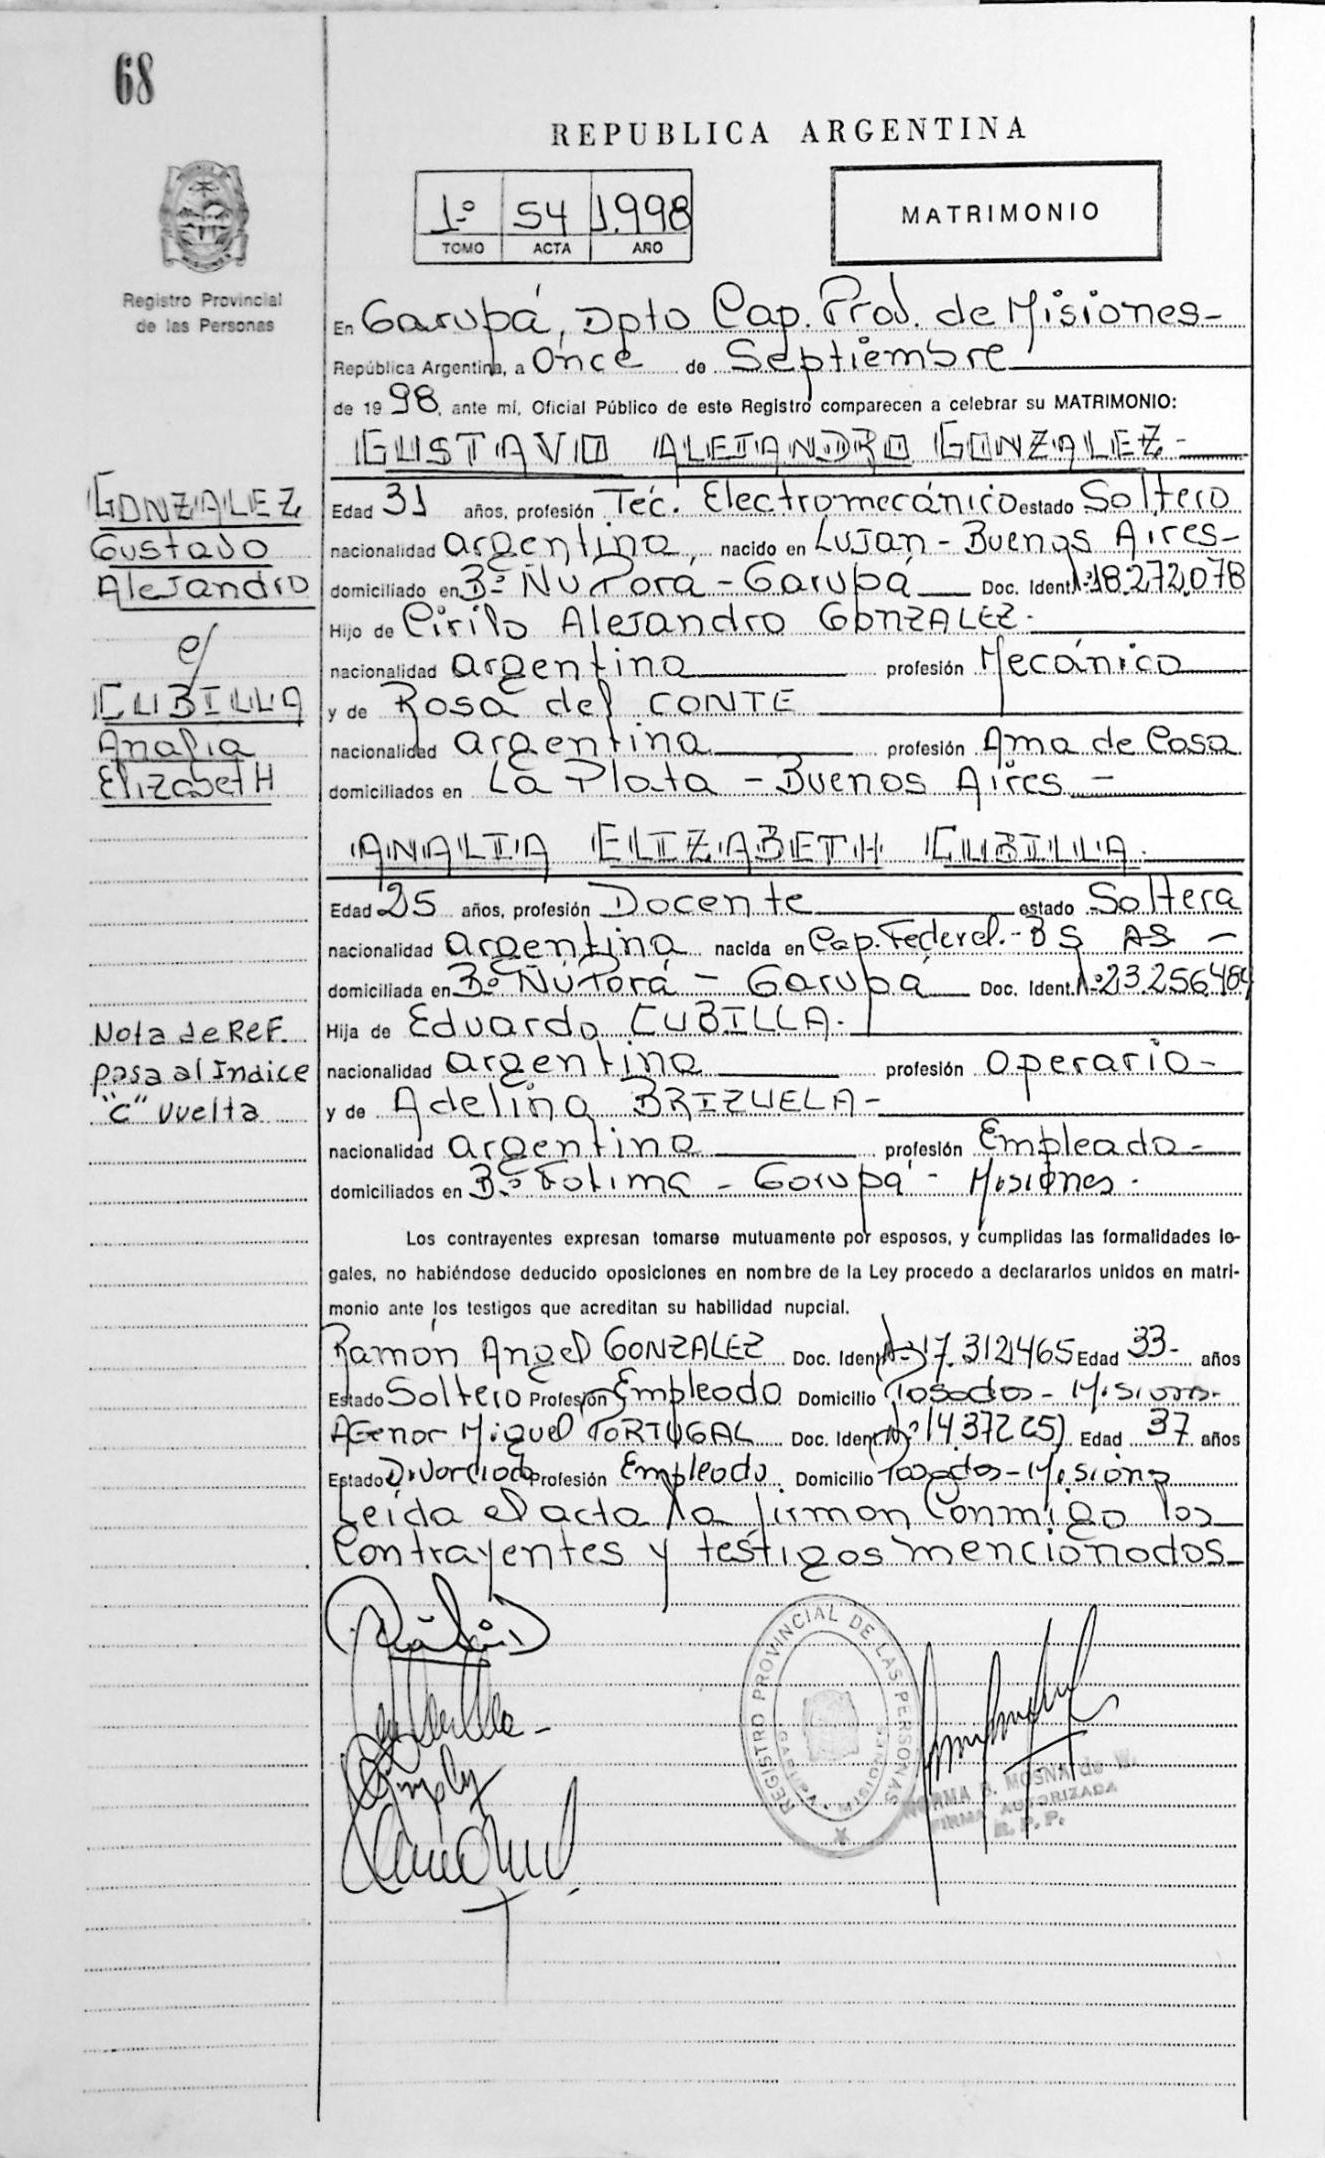 68
REPUBLICA ARGENTINA
1º 54 1.998
TOMO ACTA AÑO
MATRIMONIO
Registro Provincial
de las Personas
En Garupá, Dpto Cap. Prov. de Misiones-
República Argentina, a Once de Septiembre
de 1998, ante mí, Oficial Público de este Registro comparecen a celebrar su MATRIMONIO:
GUSTAVO ALEJANDRO GONZALEZ-
GONZALEZ
Gustavo
Alejandro
c/
CUBILLA
Analia
ElizabetH
Edad 31 años, profesión Téc. Electromecánico estado Soltero
nacionalidad argentina, nacido en Lujan - Buenos Aires-
domiciliado en Bº Ñu Porá - Garupá Doc. Ident. Nº 18.272.078
Hijo de Cirilo Alejandro GONZALEZ.
nacionalidad argentina profesión Mecánico
y de Rosa del CONTE
nacionalidad argentina profesión Ama de Casa
domiciliados en La Plata - Buenos Aires -
ANALIA ELIZABETH CUBILLA.
Edad 25 años, profesión Docente estado Soltera
nacionalidad argentina nacida en Cap. Federal.- BS AS -
domiciliada en Bº Ñú Porá - Garupá Doc. Ident. Nº 23.256.484
Hija de Eduardo CUBILLA.
nacionalidad argentina profesión Operario-
y de Adelina BRIZUELA-
nacionalidad argentina profesión Empleada-
domiciliados en Bº Fatima - Garupá - Misiones.
Nota de ReF.
pasa al Indice
"C" vuelta
Los contrayentes expresan tomarse mutuamente por esposos, y cumplidas las formalidades le-
gales, no habiéndose deducido oposiciones en nombre de la Ley procedo a declararlos unidos en matri-
monio ante los testigos que acreditan su habilidad nupcial.
Ramón Angel GONZALEZ Doc. Ident. Nº 17.312.465 Edad 33- años
Estado Soltero Profesión Empleado Domicilio Posadas - Misiones-
AGenor Miguel PORTUGAL Doc. Ident. Nº 14.372 251 Edad 37 años
Estado Divorciado Profesión Empleado Domicilio Posadas - Misiones
Leida el acta la firman Conmigo los
Contrayentes y testigos mencionados-
REGISTRO PROVINCIAL DE LAS PERSONAS
NORMA B. MOSNA de W.
FIRMA AUTORIZADA
R. P. P.